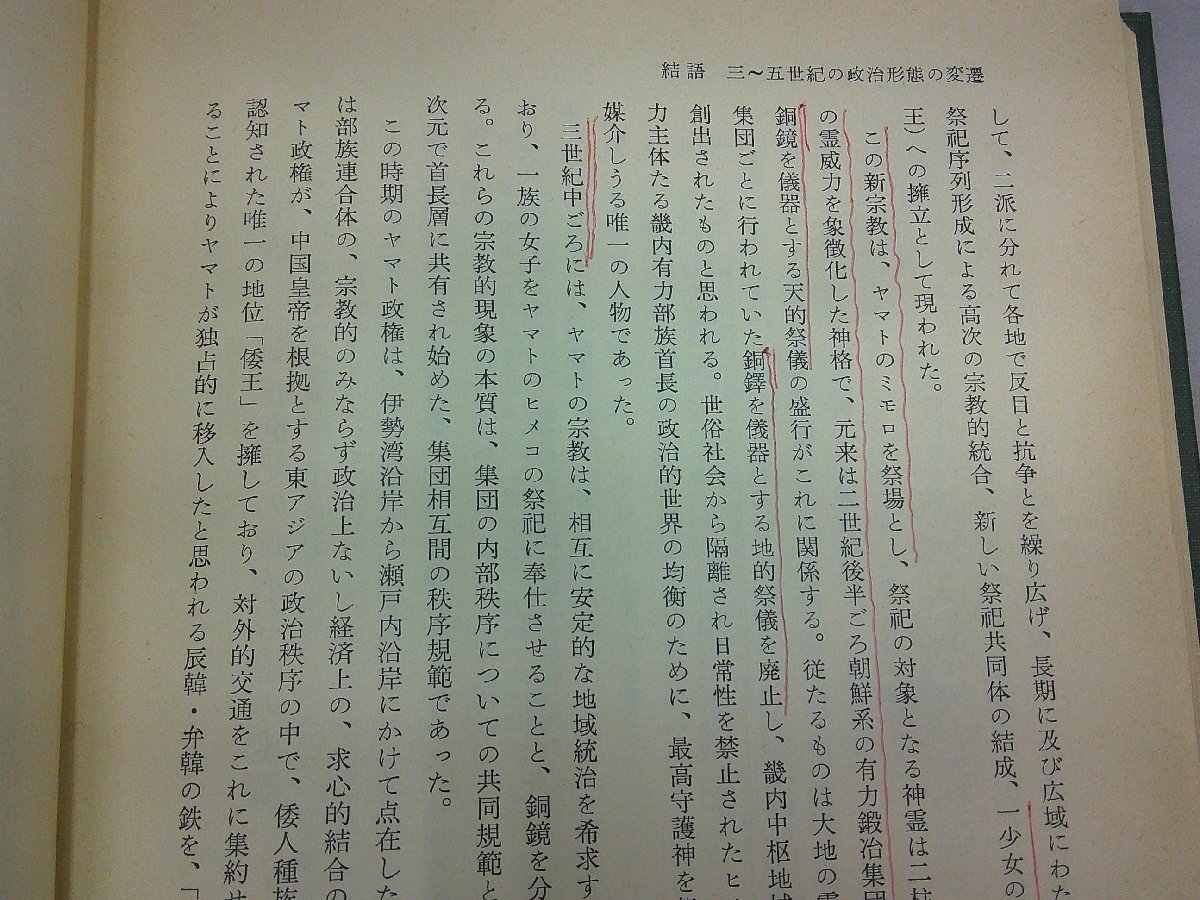 結語　三～五世紀の政治形態の変遷
して、二派に分れて各地で反目と抗争とを繰り広げ、長期に及び広域にわた
祭祀序列形成による高次の宗教的統合、新しい祭祀共同体の結成、一少女の
王）への擁立として現われた。
この新宗教は、ヤマトのミモロを祭場とし、祭祀の対象となる神霊は二柱
の霊威力を象徴化した神格で、元来は二世紀後半ごろ朝鮮系の有力鍛冶集団
銅鏡を儀器とする天的祭儀の盛行がこれに関係する。従たるものは大地の霊
集団ごとに行われていた銅鐸を儀器とする地的祭儀を廃止し、畿内中枢地域
創出されたものと思われる。世俗社会から隔離され日常性を禁止されたヒ
力主体たる畿内有力部族首長の政治的世界の均衡のために、最高守護神を
媒介しうる唯一の人物であった。
三世紀中ごろには、ヤマトの宗教は、相互に安定的な地域統治を希求す
おり、一族の女子をヤマトのヒメコの祭祀に奉仕させることと、銅鏡を分
る。これらの宗教的現象の本質は、集団の内部秩序についての共同規範と
次元で首長層に共有され始めた、集団相互間の秩序規範であった。
この時期のヤマト政権は、伊勢湾沿岸から瀬戸内沿岸にかけて点在した
は部族連合体の、宗教的のみならず政治上ないし経済上の、求心的結合の
マト政権が、中国皇帝を根拠とする東アジアの政治秩序の中で、倭人種族
認知された唯一の地位「倭王」を擁しており、対外的交通をこれに集約せ
ることによりヤマトが独占的に移入したと思われる辰韓・弁韓の鉄を、「